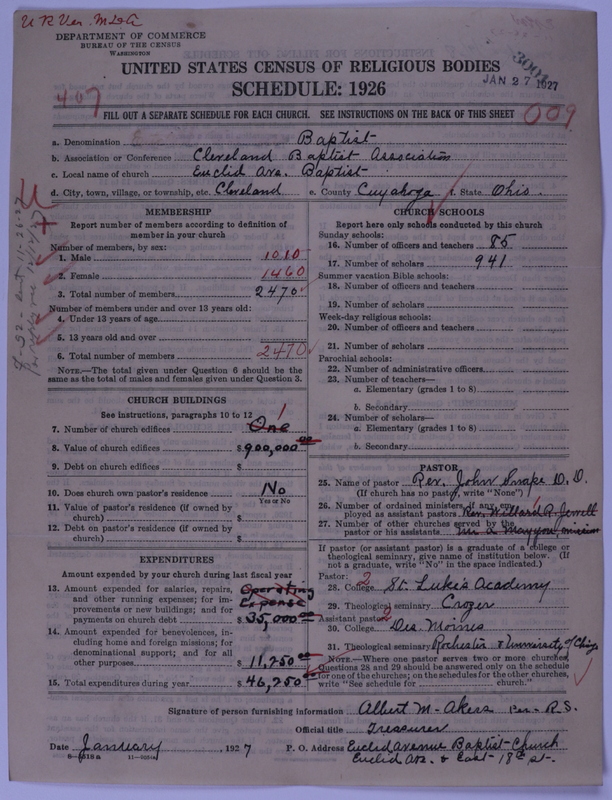 DEPARTMENT OF COMMERCE
BUREAU OF THE CENSUS
WASHINGTON
JAN 27 1927
UNITED STATES CENSUS OF RELIGIOUS BODIES
SCHEDULE: 1926
407
FILL OUT A SEPARATE SCHEDULE FOR EACH CHURCH. SEE INSTRUCTIONS ON THE BACK OF THIS SHEET
009
a. Denomination Baptist
b. Association or Conference Cleveland Baptist Association
c. Local name of church Euclid Ave. Baptist
d. City, town, village, or township, etc. Cleveland e. County Cuyahoga f. State Ohio.
MEMBERSHIP
Report number of members according to definition of
member in your church
Number of members, by sex:
1. Male 1010
2. Female 1460
3. Total number of members 2470
Number of members under and over 13 years old:
4. Under 13 years of age
5. 13 years old and over
6. Total number of members 2470
NOTE.—The total given under Question 6 should be the
same as the total of males and females given under Question 3.
CHURCH BUILDINGS
See instructions, paragraphs 10 to 12
7. Number of church edifices One 1
8. Value of church edifices $900,000.00
9. Debt on church edifices $
10. Does church own pastor's residence No
Yes or No
11. Value of pastor's residence (if owned by
church) $
12. Debt on pastor's residence (if owned by
church) $
EXPENDITURES
Amount expended by your church during last fiscal year
13. Amount expended for salaries, repairs, Operating
and other running expenses; for im- Expense
provements or new buildings; and for
payments on church debt $35,000.00
14. Amount expended for benevolences, in-
cluding home and foreign missions; for
denominational support; and for all
other purposes $11,250.00
15. Total expenditures during year $46,250.00
CHURCH SCHOOLS
Report here only schools conducted by this church
Sunday schools:
16. Number of officers and teachers 85
17. Number of scholars 941
Summer vacation Bible schools:
18. Number of officers and teachers
19. Number of scholars
Week-day religious schools:
20. Number of officers and teachers
21. Number of scholars
Parochial schools:
22. Number of administrative officers
23. Number of teachers—
a. Elementary (grades 1 to 8)
b. Secondary
24. Number of scholars—
a. Elementary (grades 1 to 8)
b. Secondary
PASTOR
25. Name of pastor Rev. John Snape D. D.
(If church has no pastor, write "None")
26. Number of ordained ministers, if any, em-
ployed as assistant pastors Rev. Willard R. Jewell
27. Number of other churches served by the
pastor or his assistants
If pastor (or assistant pastor) is a graduate of a college or
theological seminary, give name of institution below. (If
not a graduate, write "No" in the space indicated.)
Pastor:
28. College St. Luke's Academy
29. Theological seminary Crozer
Assistant pastor:
30. College Des Moines
31. Theological seminary Rochester & University of
NOTE.—Where one pastor serves two or more churches,
Questions 28 and 29 should be answered only on the schedule
for one of the churches; on the schedules for the other churches,
write "See schedule for church."
Signature of person furnishing information Albert M. Akers Per. R.S.
Official title Treasurer
Date January, 1927 P. O. Address Euclid Avenue Baptist Church
Euclid Ave. & East 18th St.